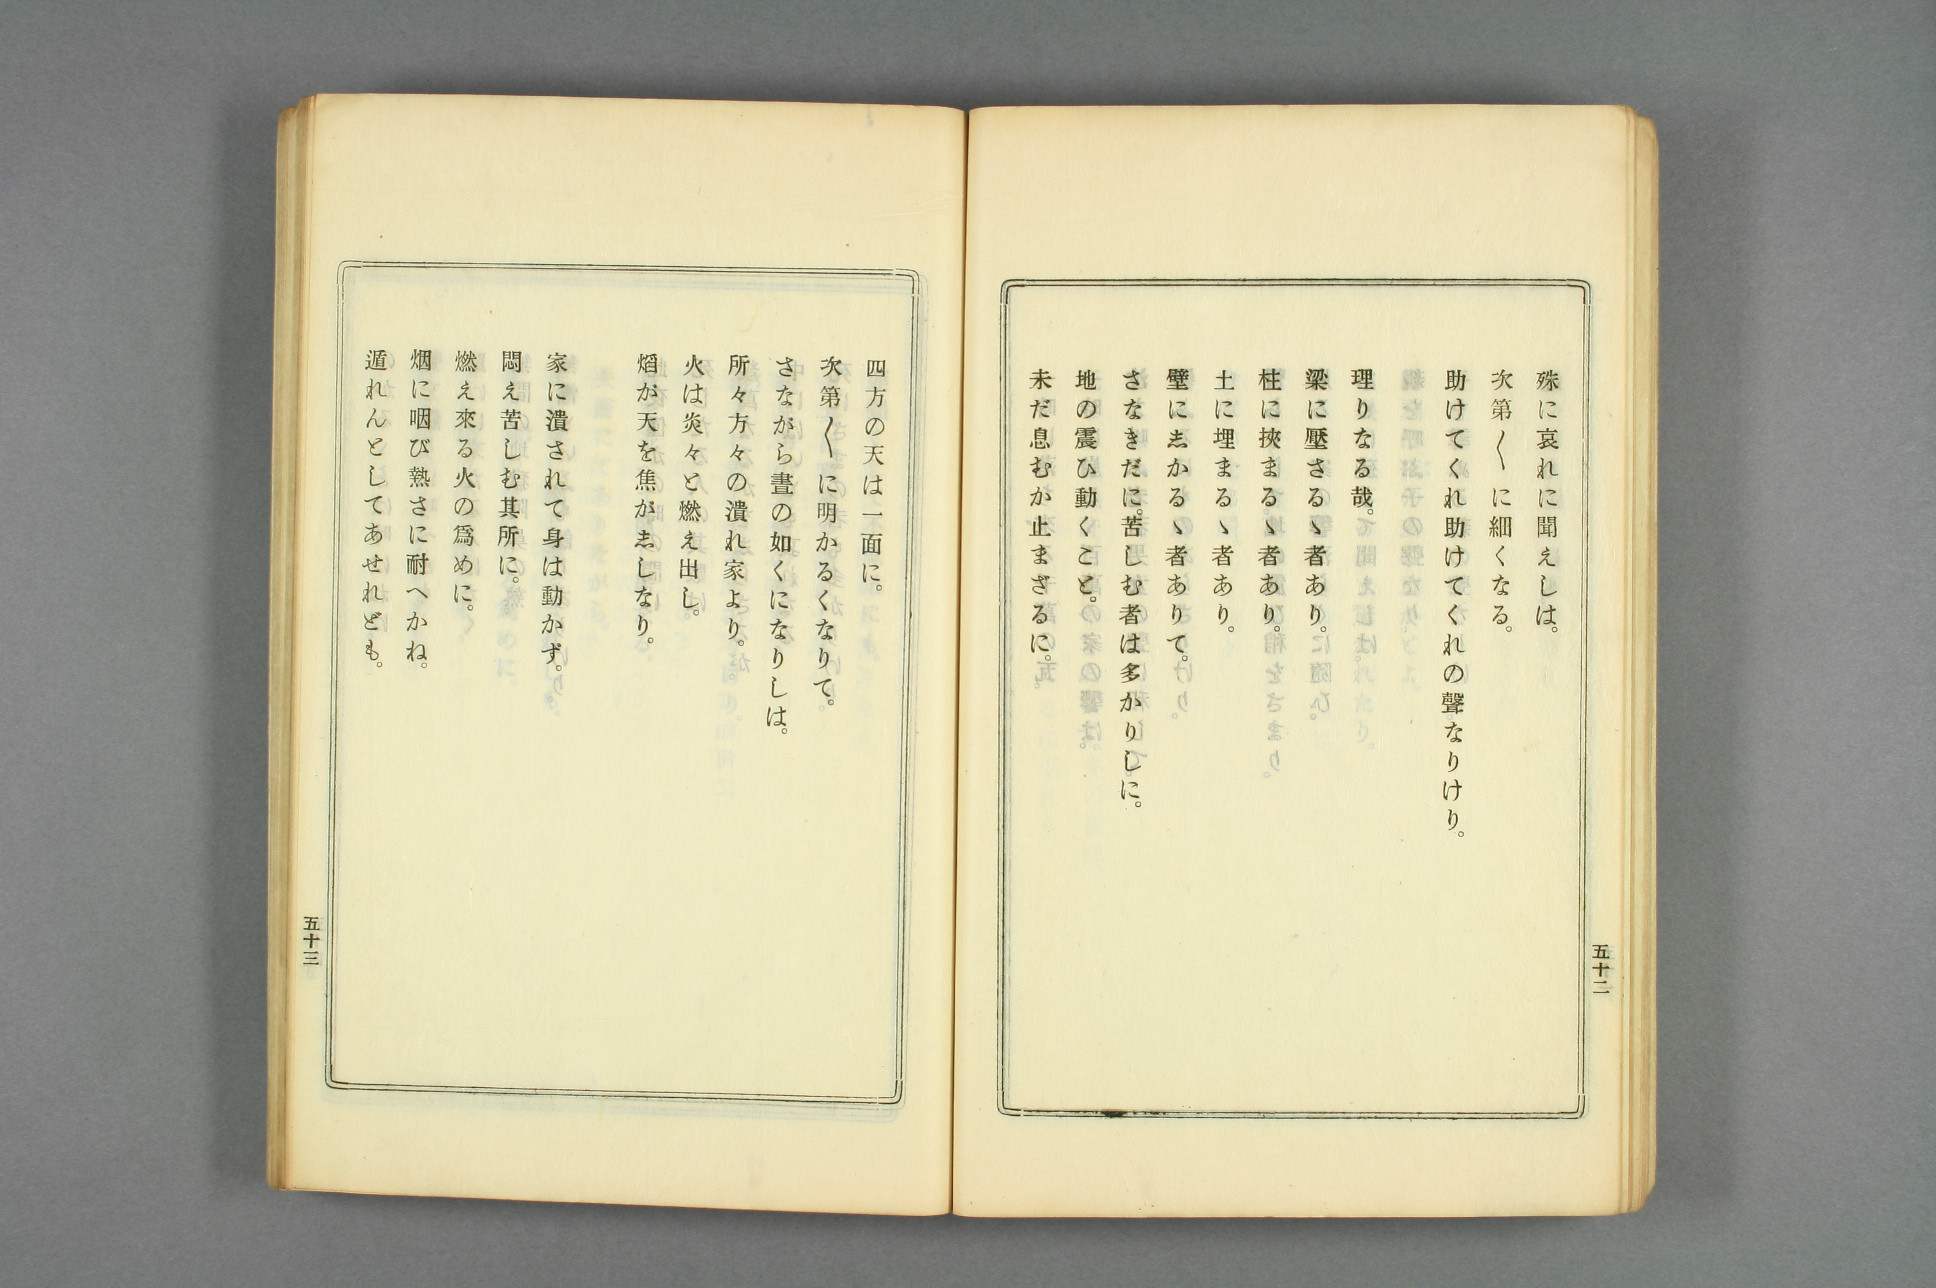 殊に哀れに聞えしは。
次第〱に細くなる。
助けてくれ助けてくれの聲なりけり。
理りなる哉。
梁に壓さるゝ者あり。
柱に挾まるゝ者あり。
土に埋まるゝ者あり。
壁に志かるゝ者ありて。
さなきだに。苦しむ者は多かりしに。
地の震ひ動くこと。
未だ息むか止まざるに。
五十二
四方の天は一面に。
次第〱に明かるくなりて。
さながら晝の如くになりしは。
所々方々の潰れ家より。
火は炎々と燃え出し。
焰が天を焦が志しなり。
家に潰されて身は動かず。
悶え苦しむ其所に。
燃え來る火の爲めに。
烟に咽び熱さに耐へかね。
遁れんとしてあせれども。
五十三